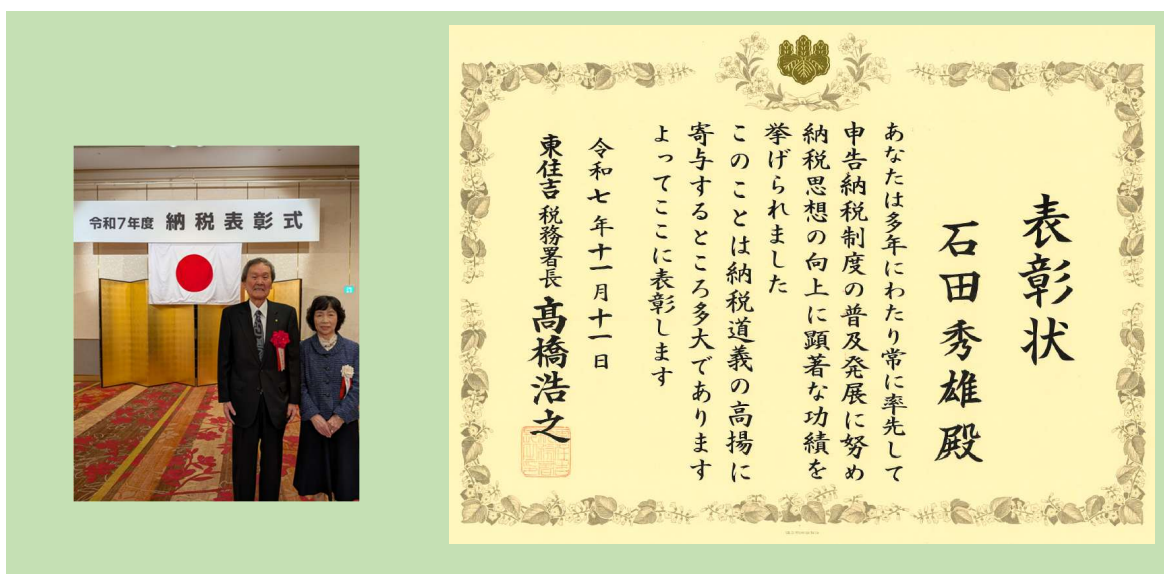 令和7年度 納税表彰式
表彰状
石田秀雄殿
あなたは多年にわたり常に率先して
申告納税制度の普及発展に努め
納税思想の向上に顕著な功績を
挙げられました
このことは納税道義の高揚に
寄与するところ多大であります
よってここに表彰します
令和七年十一月十一日
東住吉税務署長 髙橋浩之